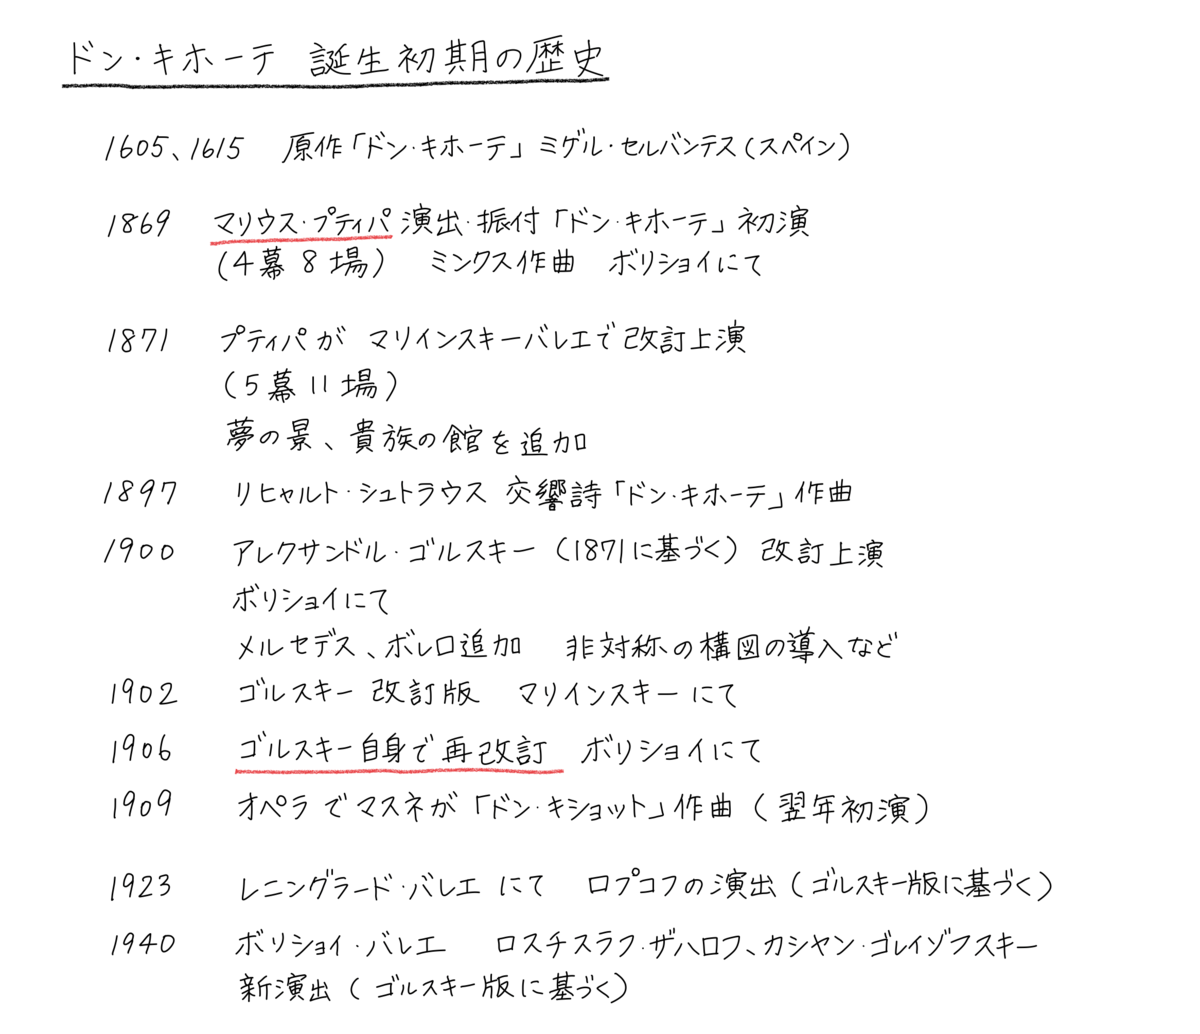 ドン・キホーテ 誕生初期の歴史
1605、1615 原作「ドン・キホーテ」ミゲル・セルバンテス(スペイン)
1869 マリウス・プティパ 演出・振付「ドン・キホーテ」初演
(4幕8場) ミンクス作曲 ボリショイにて
1871 プティパが マリインスキーバレエで改訂上演
(5幕11場)
夢の景、貴族の館を追加
1897 リヒャルト・シュトラウス 交響詩「ドン・キホーテ」作曲
1900 アレクサンドル・ゴルスキー(1871に基づく)改訂上演
ボリショイにて
メルセデス、ボレロ追加 非対称の構図の導入など
1902 ゴルスキー改訂版 マリインスキーにて
1906 ゴルスキー自身で再改訂 ボリショイにて
1909 オペラでマスネが「ドン・キショット」作曲(翌年初演)
1923 レニングラード・バレエにて ロプコフの演出(ゴルスキー版に基づく)
1940 ボリショイ・バレエ ロスチスラフ・ザハロフ、カシヤン・ゴレイゾフスキー
新演出(ゴルスキー版に基づく)